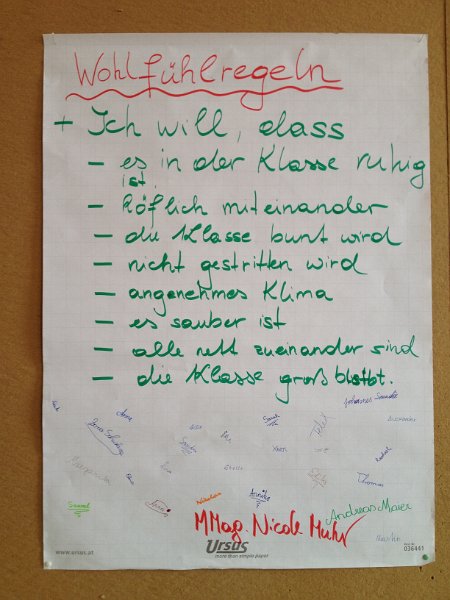 Wohlfühlregeln
+ Ich will, dass
- es in der Klasse ruhig
ist.
- höflich miteinander
- die Klasse bunt wird
- nicht gestritten wird
- angenehmes Klima
- es sauber ist
- alle nett zueinander sind
- die Klasse groß bleibt.
Thomas
Samuel
Nikolas
Andreas Maier
MMag. Nicole Muhr
www.ursus.at
Ursus
more than simple paper
036441